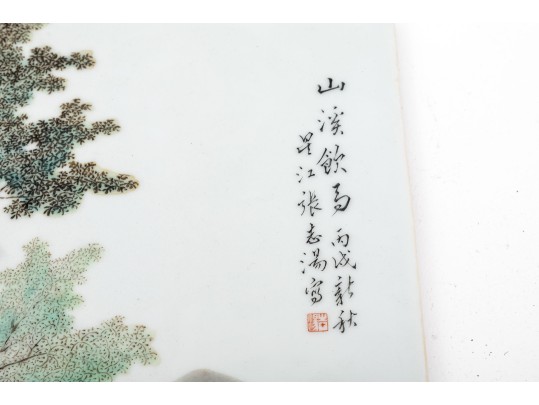 山溪飲馬丙戌新秋
星江張志湯寫